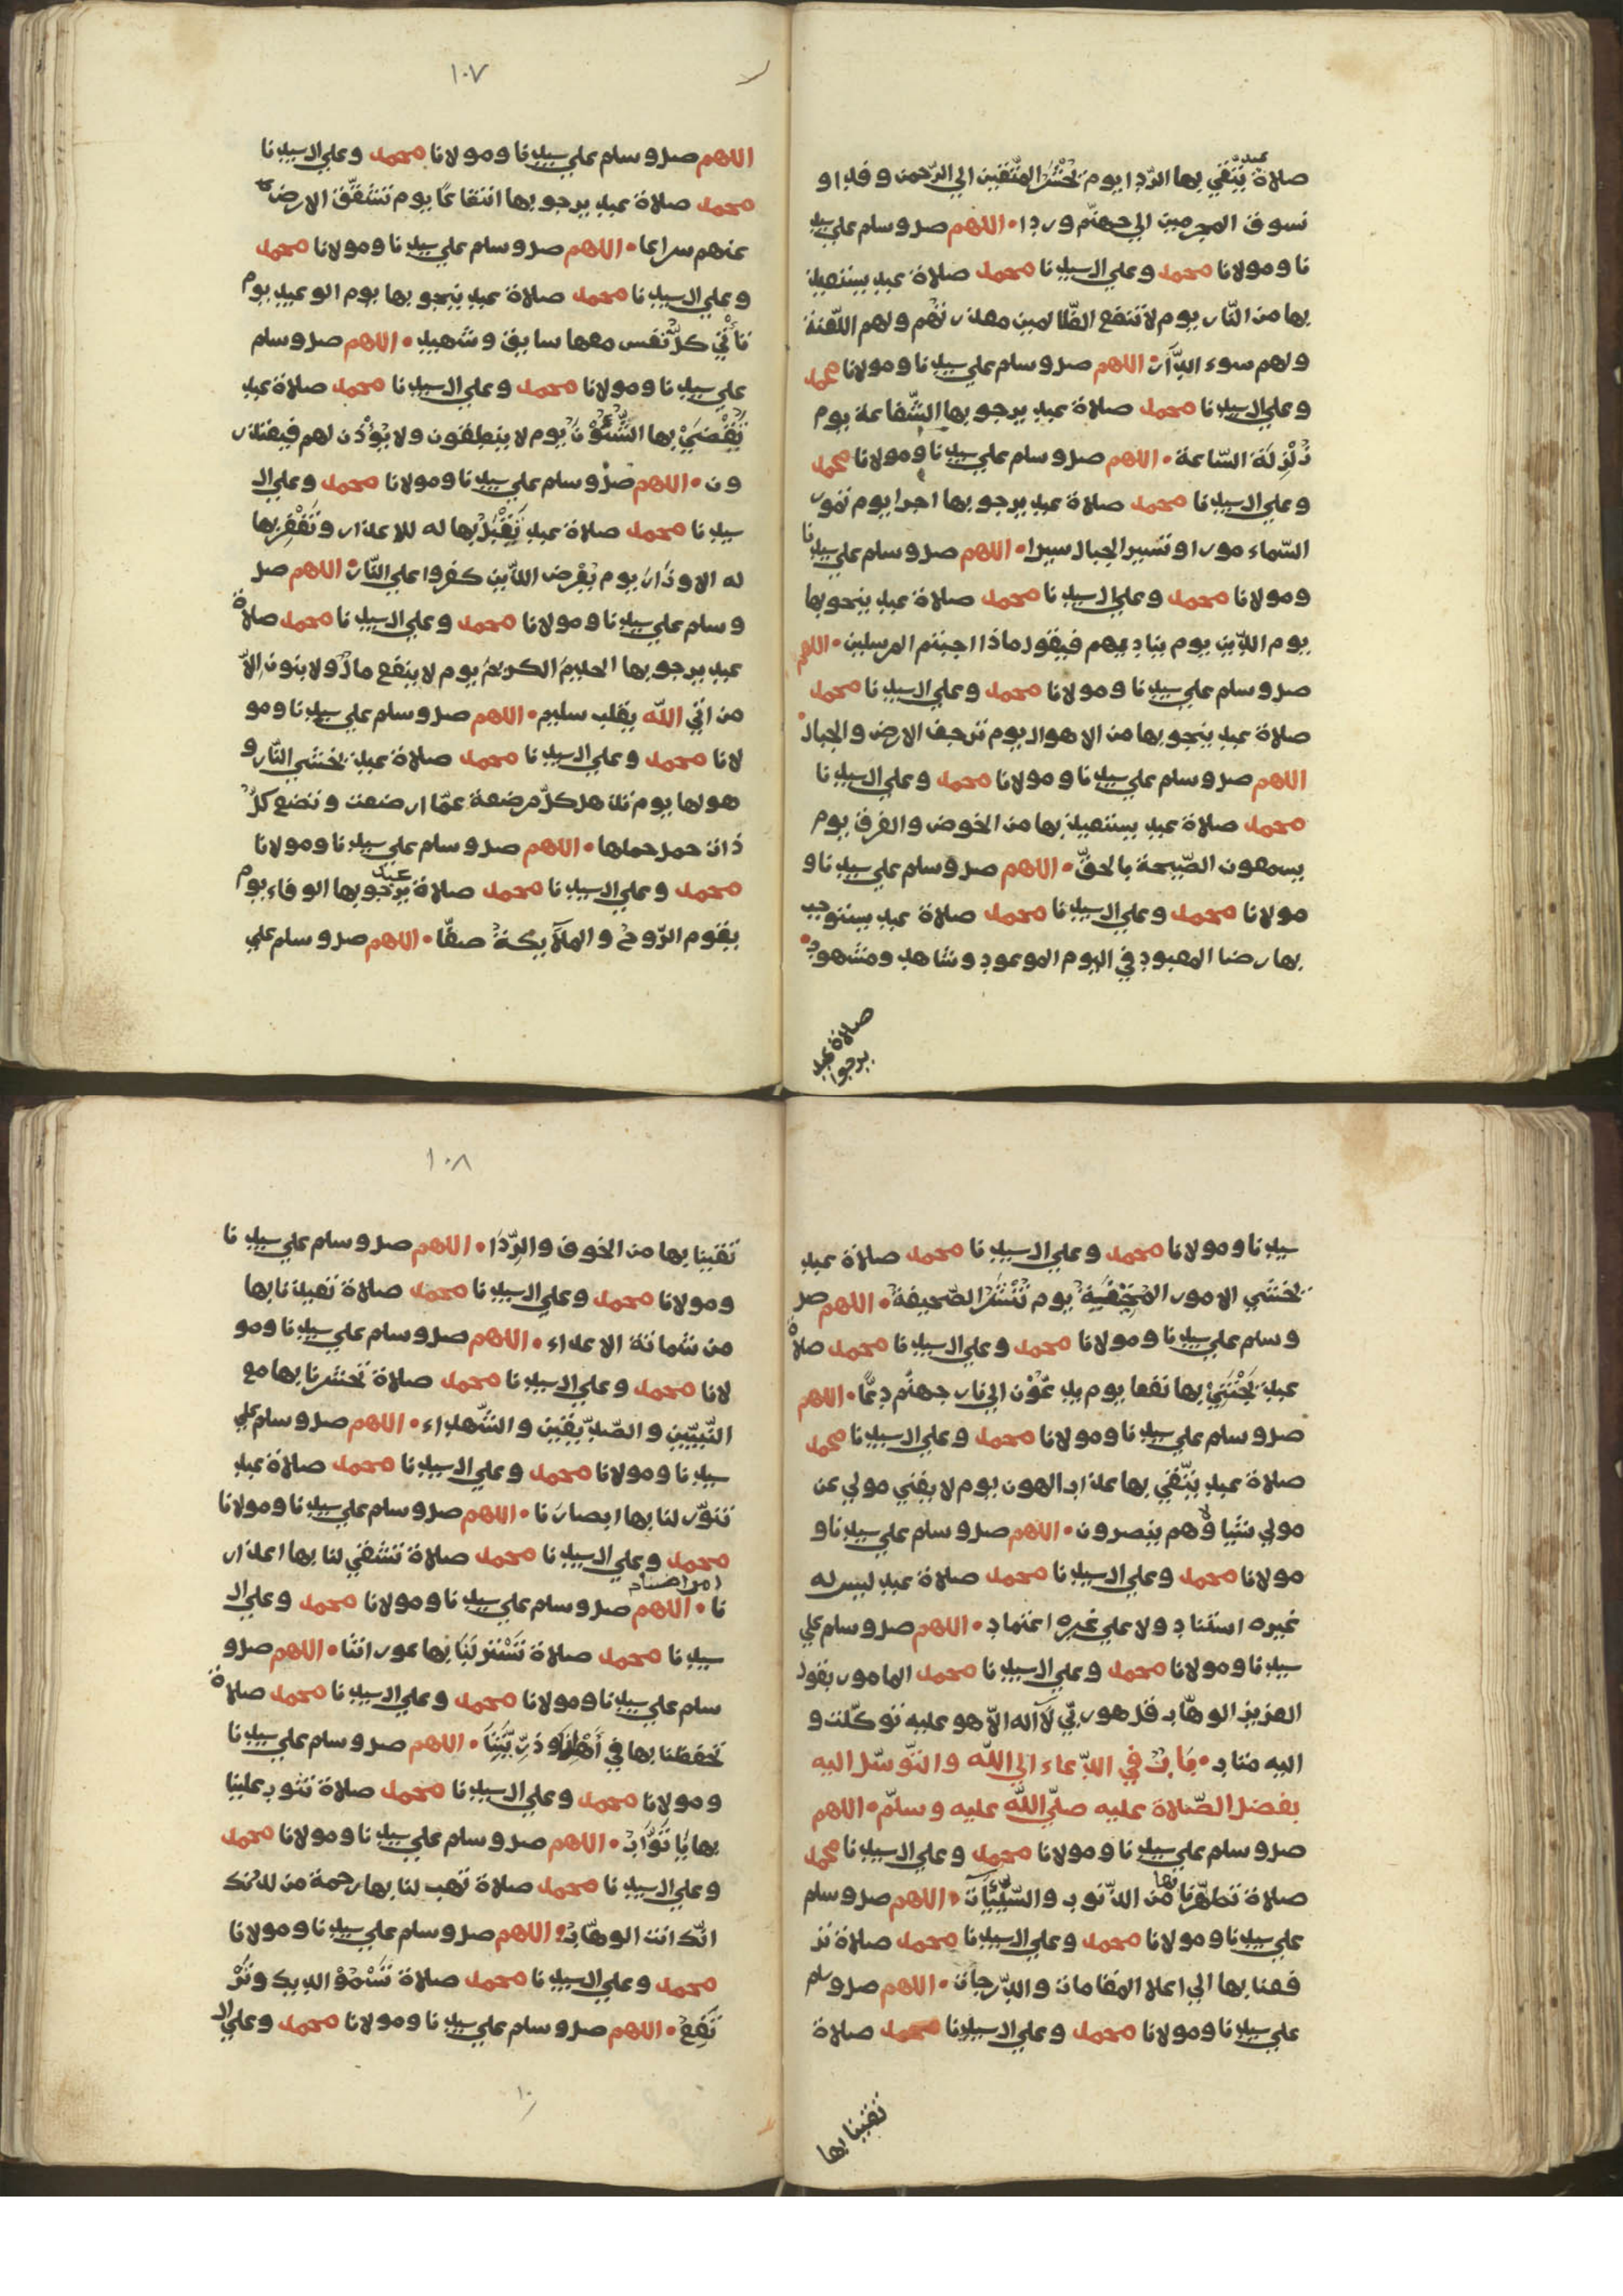 صلاة عبد يتقي بها الرّدا يوم نحْشُرُ المتّقين الي الرّحمن وفدا و
نسوق المجرمين الي جهنّم وردا • اللهم صل وسلم علي سيد
نا ومولانا محمد وعلي ال سيدنا محمد صلاة عبد يستعيذ
بها من النّار يوم لا تنفع الظّالمين معذرتهم ولهم اللّعنة
ولهم سوء الدّار • اللهم صل وسلم علي سيدنا ومولانا محمد
وعلي ال سيدنا محمد صلاة عبد يرجو بها الشّفاعة يوم
زلْزلَة السّاعة • اللهم صل وسلم علي سيدنا ومولانا محمد
وعلي ال سيدنا محمد صلاة عبد يرجو بها اجرا يوم تمور
السّماء مورا وتسير الجبال سيرا • اللهم صل وسلم علي سيدنا
ومولانا محمد وعلي ال سيدنا محمد صلاة عبد ينجو بها
يوم الدّين يوم يناديهم فيقول ماذا اجبتم المرسلين • اللهم
صل وسلم علي سيدنا ومولانا محمد وعلي ال سيدنا محمد
صلاة عبد ينجو بها من الاهوال يوم ترجف الارض والجبال •
اللهم صل وسلم علي سيدنا ومولانا محمد وعلي ال سيدنا
محمد صلاة عبد يستعيذ بها من الخوض والفرق يوم
يسمعون الصّيحة بالحقّ • اللهم صل وسلم علي سيدنا و
مولانا محمد وعلي ال سيدنا محمد صلاة عبد يستوجب
بها رضا المعبود في اليوم الموعود وشاهد ومشهود •
صلاة عبد
يرجوا
١٠٧
اللهم صل وسلم علي سيدنا ومولانا محمد وعلي ال سيدنا
محمد صلاة عبد يرجو بها انتفاعًا يوم تشقّق الارض
عنهم سراعا • اللهم صل وسلم علي سيدنا ومولانا محمد
وعلي ال سيدنا محمد صلاة عبد ينجو بها يوم الوعيد يوم
تأتي كلّ نفس معها سايق وشهيد • اللهم صل وسلم
علي سيدنا ومولانا محمد وعلي ال سيدنا محمد صلاة عبد
تقْضي بها الشّئون يوم لا ينطقون ولا يؤذن لهم فيعتذر
ون • اللهم صل وسلم علي سيدنا ومولانا محمد وعلي ال
سيدنا محمد صلاة عبد تقْبل بها له الاعذار وتغْفر بها
له الاوزار يوم يعْرض الذّين كفروا علي النّار • اللهم صل
وسلم علي سيدنا ومولانا محمد وعلي ال سيدنا محمد صلاة
عبد يرجو بها الحليم الكريم يوم لا ينفع مال ولا بنون الاّ
من اتي اللّه بقلب سليم • اللهم صل وسلم علي سيدنا ومو
لانا محمد وعلي ال سيدنا محمد صلاة عبد يخشي النّار و
هولها يوم تذهل كلّ مرضعة عمّا ارضعت وتضع كلّ
ذات حمل حملها • اللهم صل وسلم علي سيدنا ومولانا
محمد وعلي ال سيدنا محمد صلاة عبد يرجو بها الوفاء يوم
يقوم الرّوح والملآيكة صفّا • اللهم صل وسلم علي
سيدنا ومولانا محمد وعلي ال سيدنا محمد صلاة عبد
يخشي الامور المخْفية يوم تنْشر الصّحيفة • اللهم صل
وسلم علي سيدنا ومولانا محمد وعلي ال سيدنا محمد صلاة
عبد يجْتني بها نفعا يوم يدعّون الي نار جهنّم دعّا • اللهم
صل وسلم علي سيدنا ومولانا محمد وعلي ال سيدنا محمد
صلاة عبد يتّقي بها عذاب الهون يوم لا يغني مولي عن
مولي شيا ولا هم ينصرون • اللهم صل وسلم علي سيدنا و
مولانا محمد وعلي ال سيدنا محمد صلاة عبد ليس له
غيره استناد ولا علي غيره اعتماد • اللهم صل وسلم علي
سيدنا ومولانا محمد وعلي ال سيدنا محمد المامور بقول
العزيز الوهّاب قل هو ربّي لآ اله الاّ هو عليه توكّلت و
اليه متاب • باب في الدّعاء الي اللّه والتّوسّل اليه
بفضل الصّلاة عليه صلّي اللّه عليه وسلّم • اللهم
صل وسلم علي سيدنا ومولانا محمد وعلي ال سيدنا محمد
صلاة تطهّرنا بها من الذّنوب والسّيّئآت • اللهم صل وسلم
علي سيدنا ومولانا محمد وعلي ال سيدنا محمد صلاة تر
فعنا بها الي اعلا المقامات والدّرجات • اللهم صل وسلم
علي سيدنا ومولانا محمد وعلي ال سيدنا محمد صلاة
تقينا بها
١٠٨
تقينا بها من الخوف والرّدا • اللهم صل وسلم علي سيدنا
ومولانا محمد وعلي ال سيدنا محمد صلاة تعيذنا بها
من شماتة الاعداء • اللهم صل وسلم علي سيدنا ومو
لانا محمد وعلي ال سيدنا محمد صلاة تحشرنا بها مع
النّبيّين والصّدّيقين والشّهداء • اللهم صل وسلم علي
سيدنا ومولانا محمد وعلي ال سيدنا محمد صلاة عبد
تنوّر لنا بها ابصارنا • اللهم صل وسلم علي سيدنا ومولانا
محمد وعلي ال سيدنا محمد صلاة تشفي لنا بها اعذار
نا • اللهم صل وسلم علي سيدنا ومولانا محمد وعلي ال
سيدنا محمد صلاة تسْتر لنا بها عوراتنا • اللهم صل و
سلم علي سيدنا ومولانا محمد وعلي ال سيدنا محمد صلاة
تحفظنا بها في أهْلنا وذرّيّتنا • اللهم صل وسلم علي سيدنا
ومولانا محمد وعلي ال سيدنا محمد صلاة تتوب علينا
بها يا توّاب • اللهم صل وسلم علي سيدنا ومولانا محمد
وعلي ال سيدنا محمد صلاة تهب لنا بها رحمة من لدنك
انّك انت الوهّاب • اللهم صل وسلم علي سيدنا ومولانا
محمد وعلي ال سيدنا محمد صلاة تسْموْ اليك وترْ
تفع • اللهم صل وسلم علي سيدنا ومولانا محمد وعلي ال